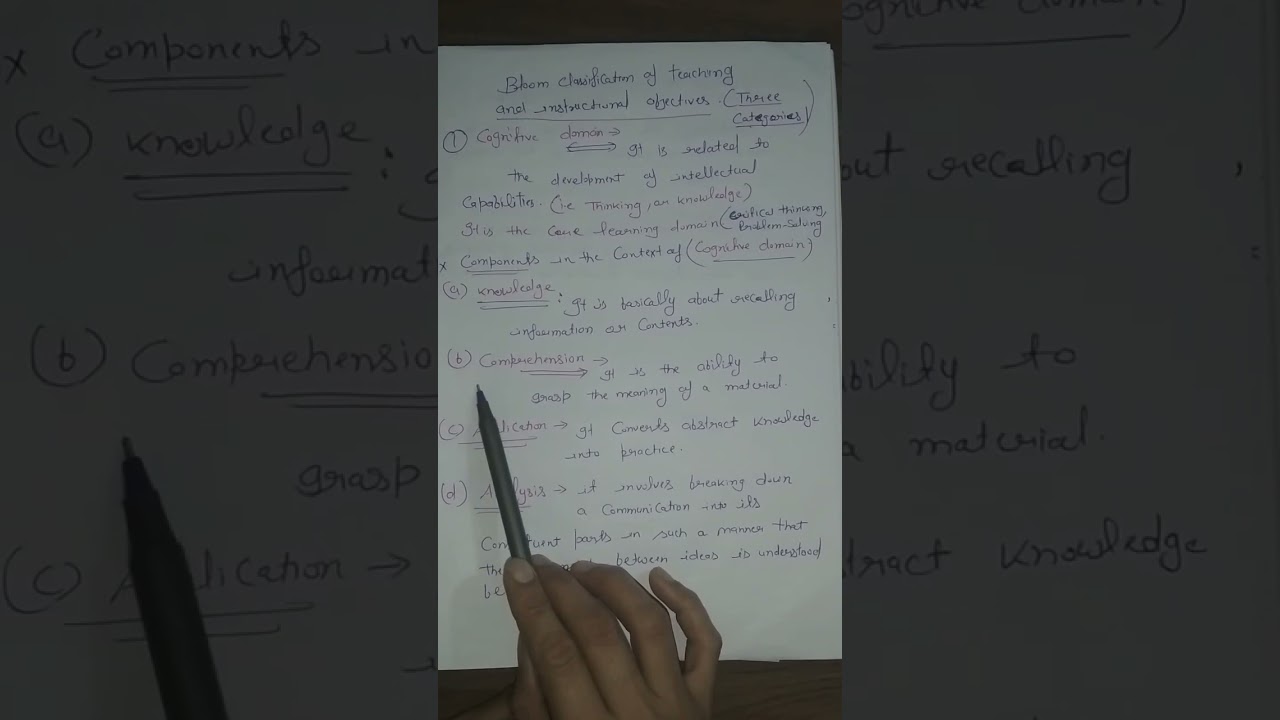 Bloom classification of teaching
and instructional objectives. (Three
Categories)
① Cognitive domain →
It is related to
the development of intellectual
Capabilities. (i.e Thinking, or knowledge)
It is the Core learning domain (critical thinking,
Problem-Solving
x Components in the Context of (Cognitive domain)
(a) knowledge : It is basically about recalling
information or Contents.
(b) Comprehension →
It is the ability to
grasp the meaning of a material.
(c) → It Converts abstract knowledge
into practice.
(d) → it involves breaking down
a Communication into its
parts in such a manner that
between ideas is understood